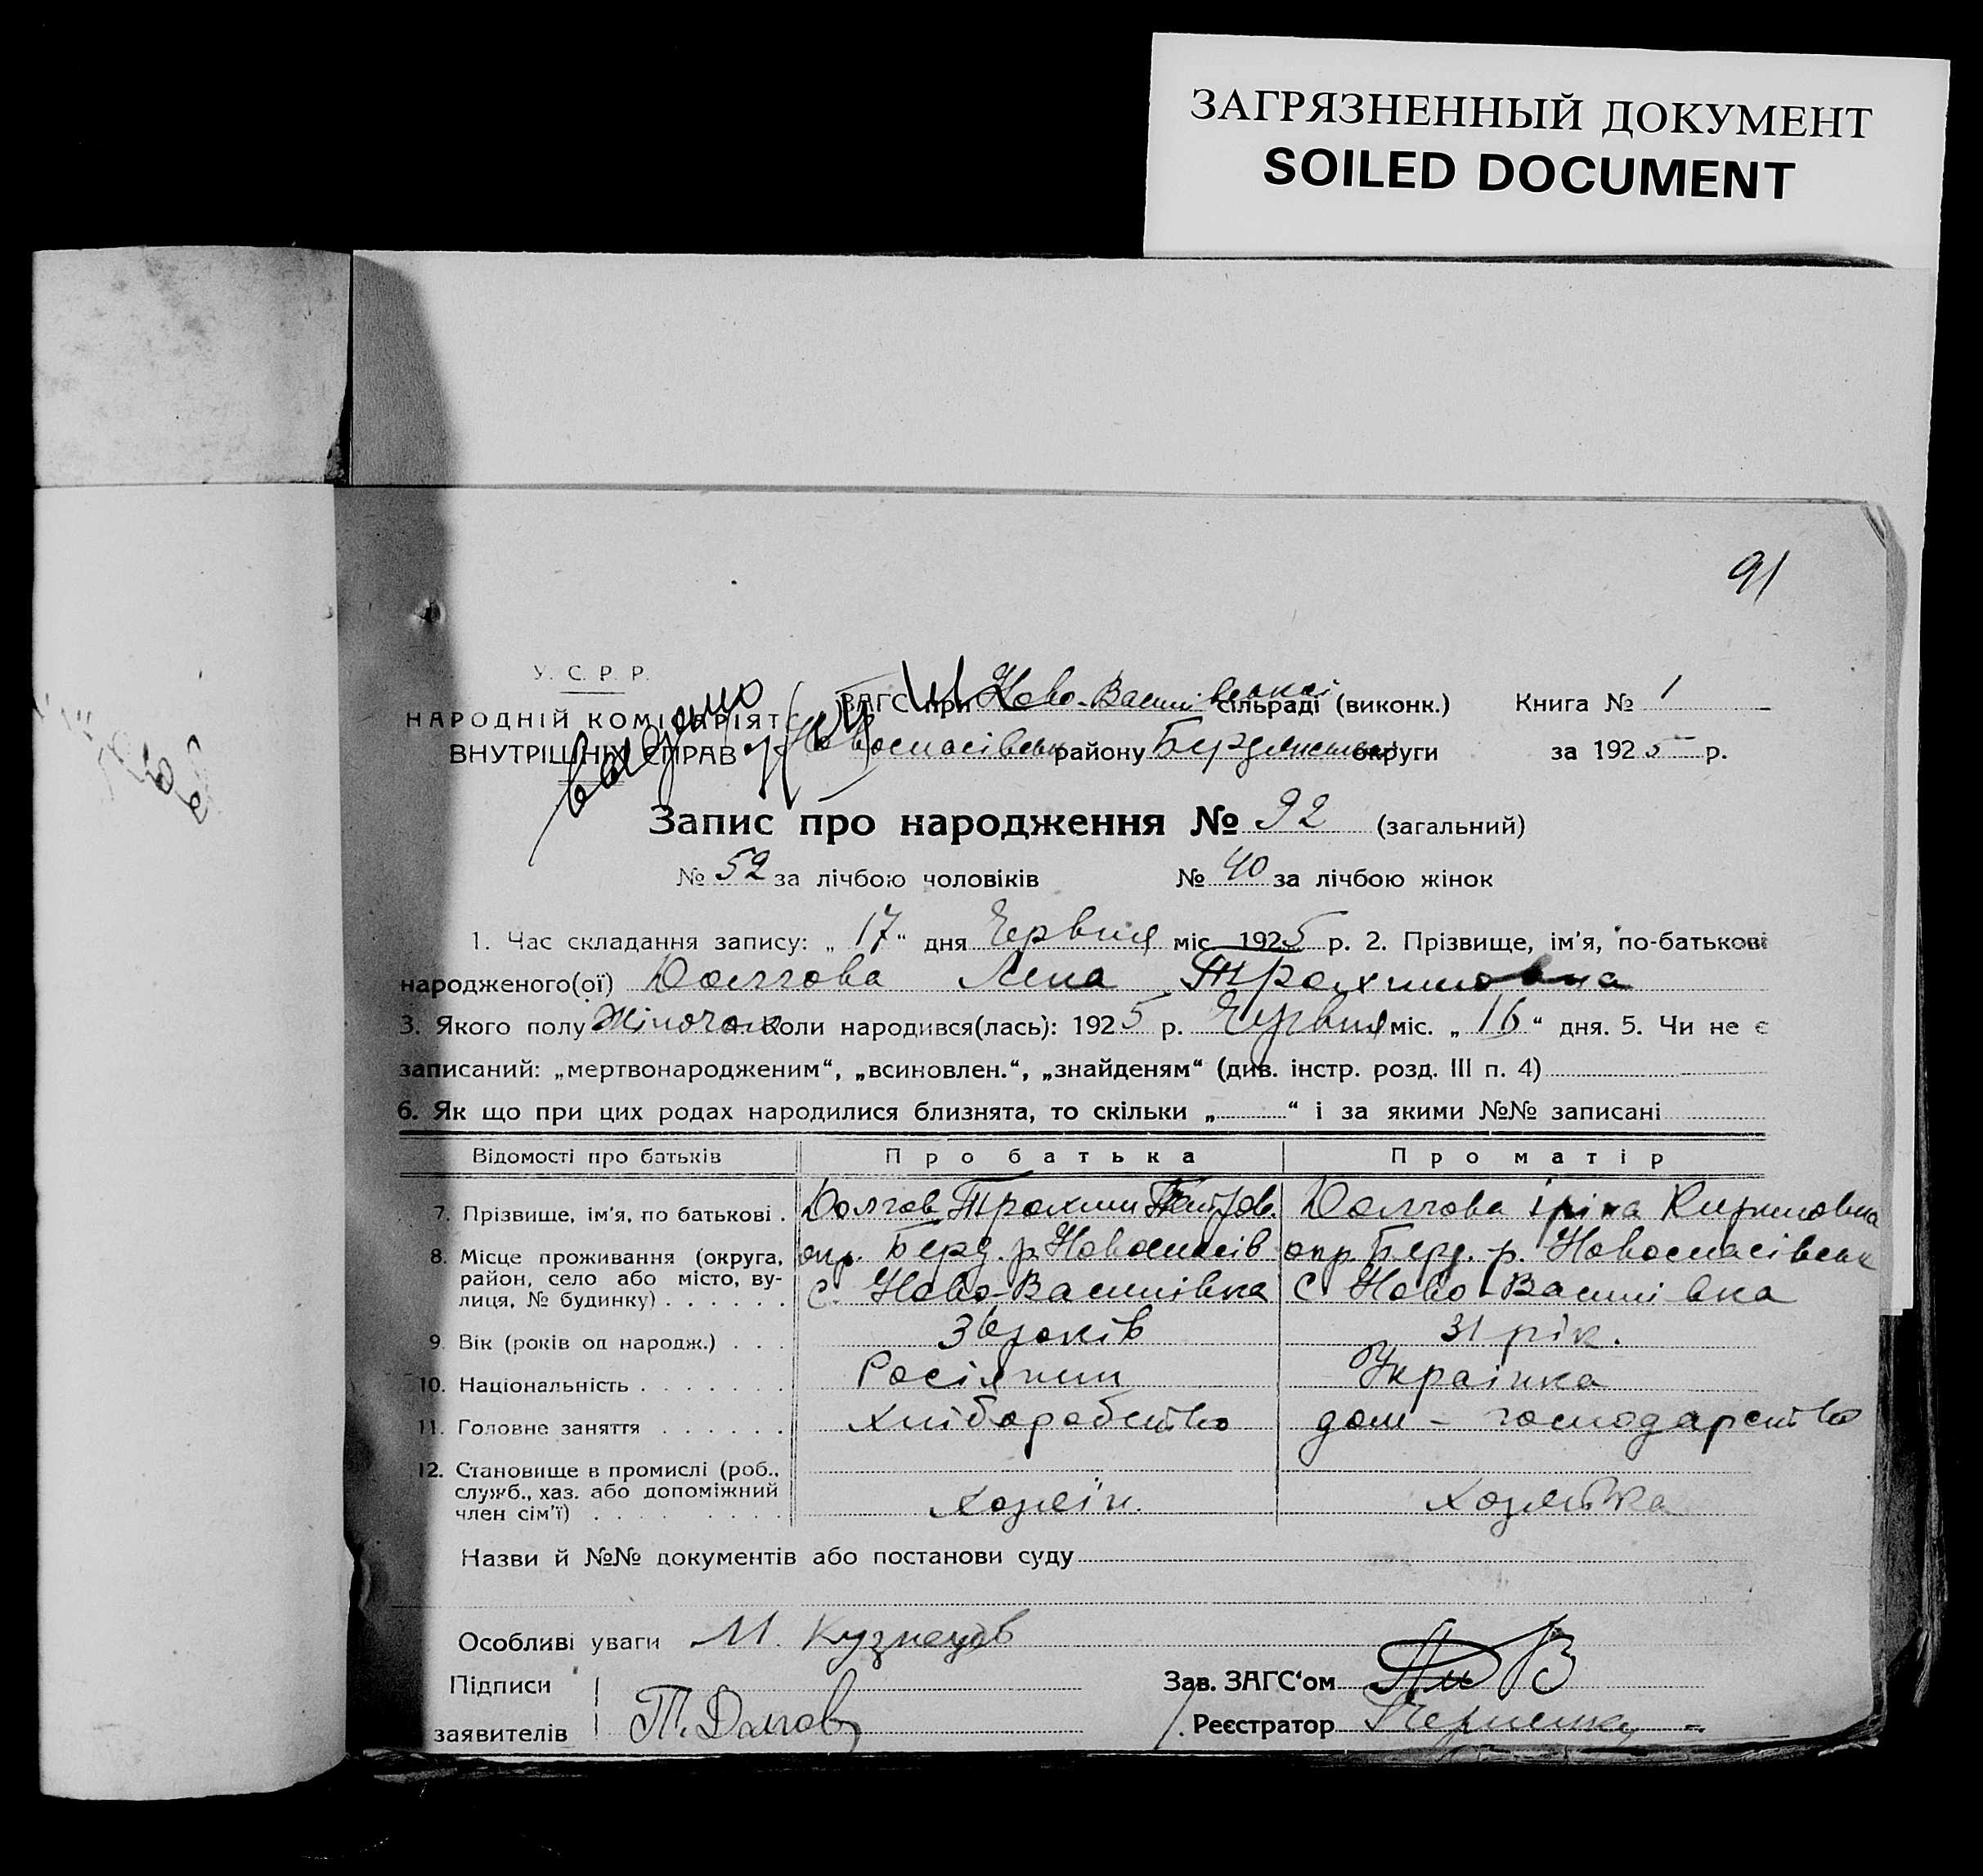 ЗАГРЯЗНЕННЫЙ ДОКУМЕНТ
SOILED DOCUMENT
91
У. С. Р. Р.
НАРОДНІЙ КОМІСАРІЯТ
ВНУТРІШНІХ СПРАВ
ЗАГС при Ново-Василівської сільраді (виконк.) Книга № 1
Новоспасівськ району Бердянської округи за 1925 р.
Запис про народження № 92 (загальний)
№ 52 за лічбою чоловіків № 40 за лічбою жінок
1. Час складання запису: „ 17 “ дня Червня міс. 1925 р. 2. Прізвище, ім'я, по-батькові
народженого(ої) Долгова Лена Трохимовна
3. Якого полу Жіночок Коли народився(лась): 1925 р. Червня міс. „ 16 “ дня. 5. Чи не є
записаний: „мертвонародженим“, „всиновлен.“, „знайденям“ (див. інстр. розд. III п. 4)
6. Як що при цих родах народилися близнята, то скільки „ “ і за якими №№ записані
Відомості про батьків Про батька Про матір
7. Прізвище, ім'я, по батькові . Долгов Трохим Петров. Долгова Іріна Кириловна
8. Місце проживання (округа, окр. Берд. р. Новоспасів окр Берд. р. Новоспасівськ
район, село або місто, ву-
лиця, № будинку) . . . . . . с. Ново-Василівка с Ново-Василівка
9. Вік (років од народж.) . . . 36 років 31 рік.
10. Національність . . . . . . . Росіянин Українка
11. Головне заняття . . . . . . Хліборобство дом – господарство
12. Становище в промислі (роб.,
служб., хаз. або допоміжний
член сім'ї) . . . . . . . . Хозяїн. Хозяйка
Назви й №№ документів або постанови суду
Особливі уваги М. Кузнецов
Підписи Зав. ЗАГС'ом
заявителів Т. Долгов Реєстратор